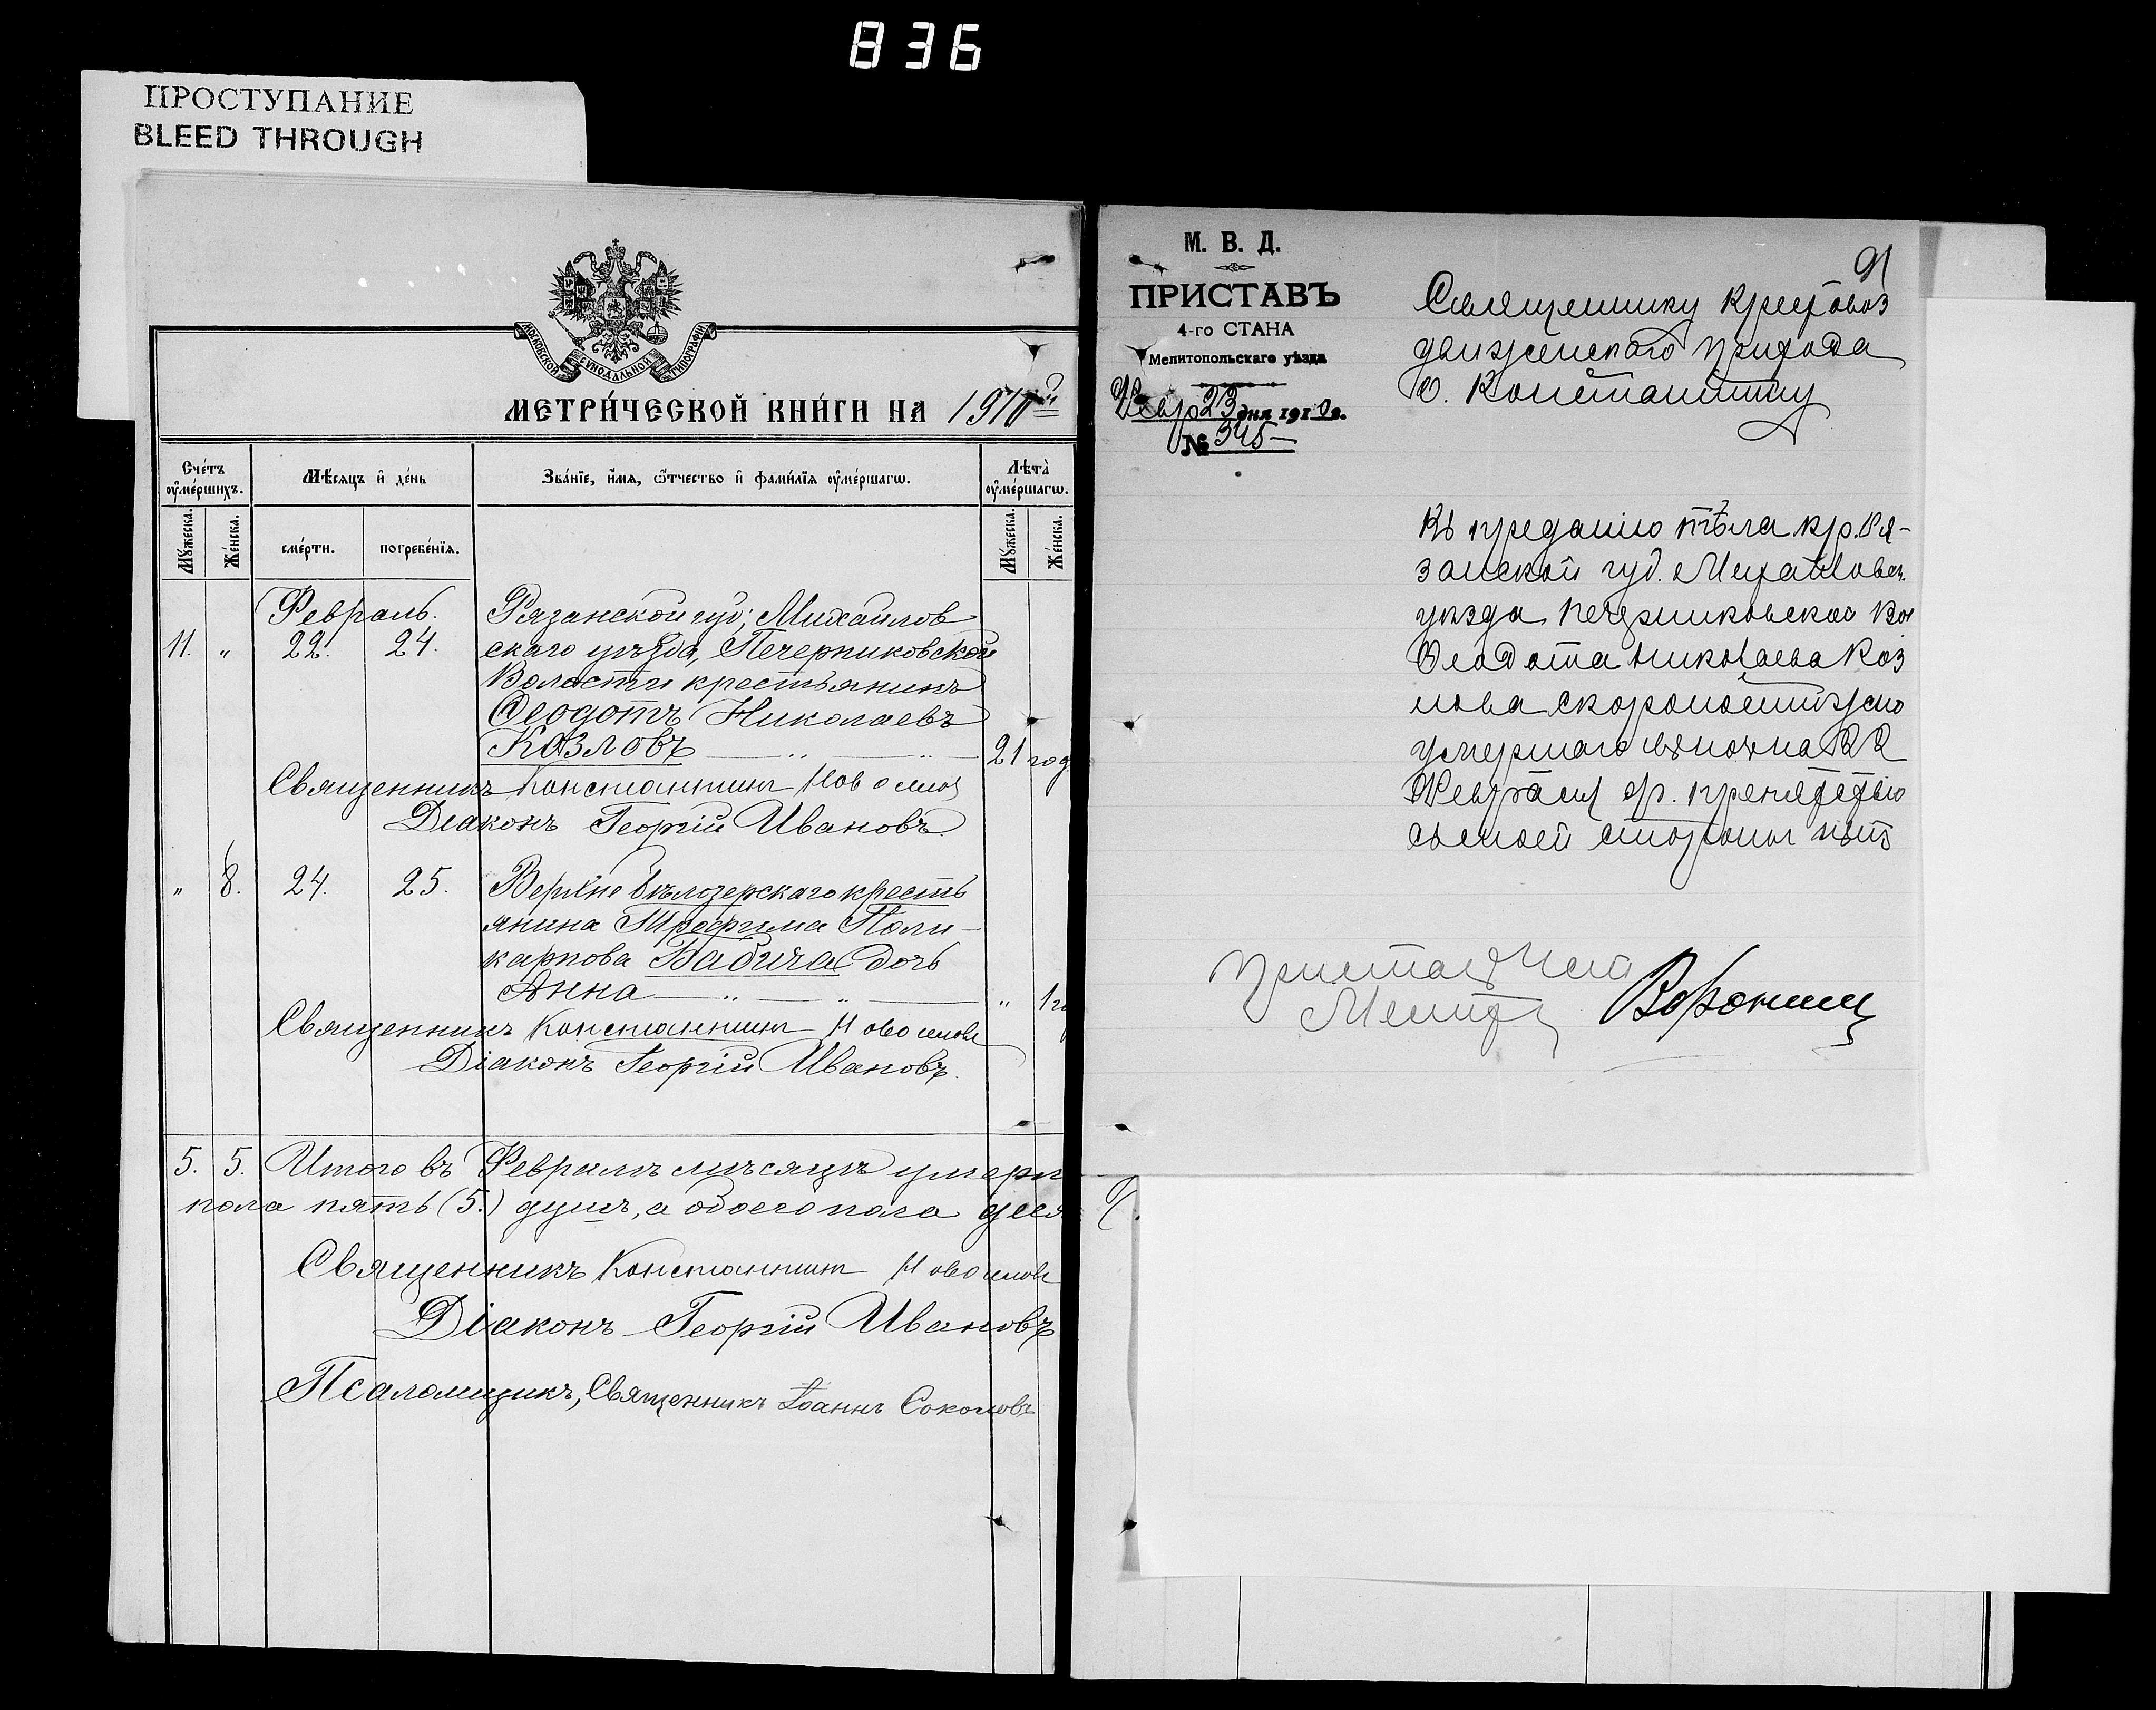 836
ПРОСТУПАНИЕ
BLEED THROUGH
МОСКОВСКОЙ СѴНОДАЛЬНОЙ ТИПОГРАФІИ
МЕТРИ́ЧЕСКОЙ КНИ́ГИ НА 1910
Сче́тъ ᲂу҆ме́ршихъ.
Мѣ́сяцъ и҆ де́нь
Зва́нїе, и҆́мя, ѻ҆́тчество и҆ фами́лїя ᲂу҆ме́ршагѡ.
Лѣта̀ ᲂу҆ме́ршагѡ.
Мꙋ́жеска.
Же́нска.
сме́рти.
погребе́нїя.
Мꙋ́жеска.
Же́нска.
Февраль.
Рязанской губ; Михайлов
11. " 22. 24. скаго уѣзда, Печерниковской
Волости крестьянинъ
Ѳеодотъ Николаевъ
Козловъ 21 год
Священникъ Константинъ
Діаконъ Георгій Ивановъ.
" 8. 24. 25. Верхне бѣлозерскаго кресть
янина Трофима Поли-
карпова Бабича дочь
Анна " 1 го
Священникъ Константинъ Новоселовъ
Діаконъ Георгій Ивановъ.
5. 5. Итого въ Февралѣ мѣсяцѣ умерл
пола пять (5.) душъ, а обоего пола деся
Священникъ Константинъ Новоселовъ
Діаконъ Георгій Ивановъ
Псаломщикъ, Священникъ Іоаннъ Соколовъ
91
М. В. Д.
ПРИСТАВЪ
4-го СТАНА
Мелитопольскаго уѣзда
Февр 23 дня 1910 г.
№ 345
Священнику Крестовоз
движенскаго прихода
о. Константину
Къ преданію тѣла кр. Ря-
занской губ. Михайловск.
уѣзда Печерниковской Вол
Ѳеодота Николаева Коз
лова скоропостижно
умершаго въ ночь на 22
Февраля препятствію
съ моей стороны нѣтъ
Приставъ
Мелит Воронин